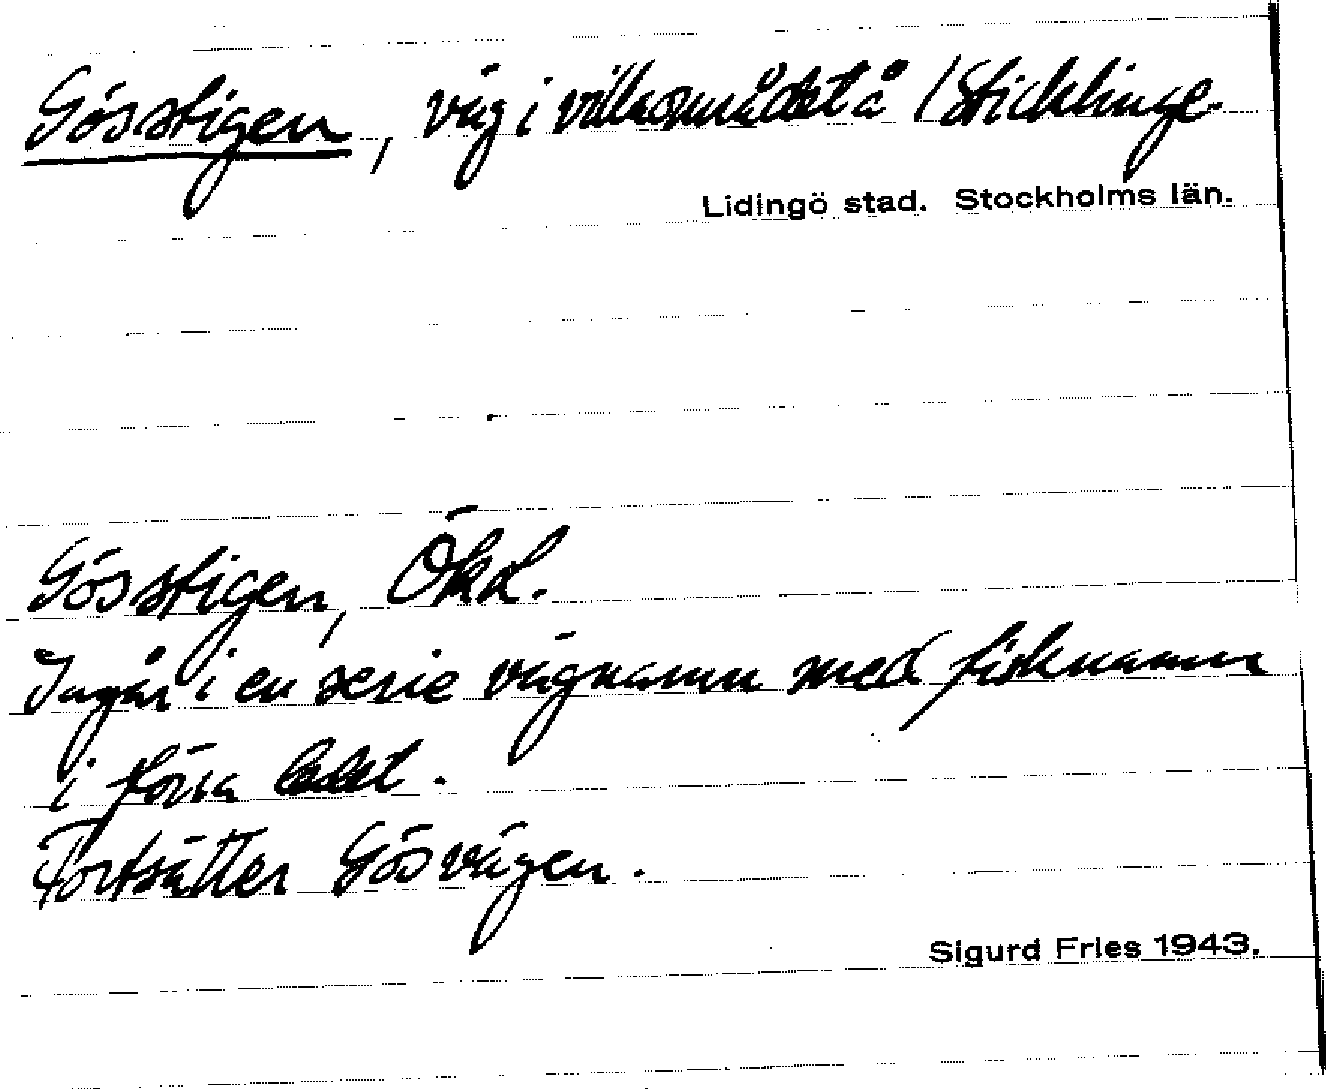 Gösstigen, väg i villaområdet å Sticklinge.
Lidingö stad. Stockholms län.
Gösstigen, Ökd.
Ingår i en serie vägnamn med fisknamn
i förra ledet.
Fortsätter Gösvägen.
Sigurd Fries 1943.